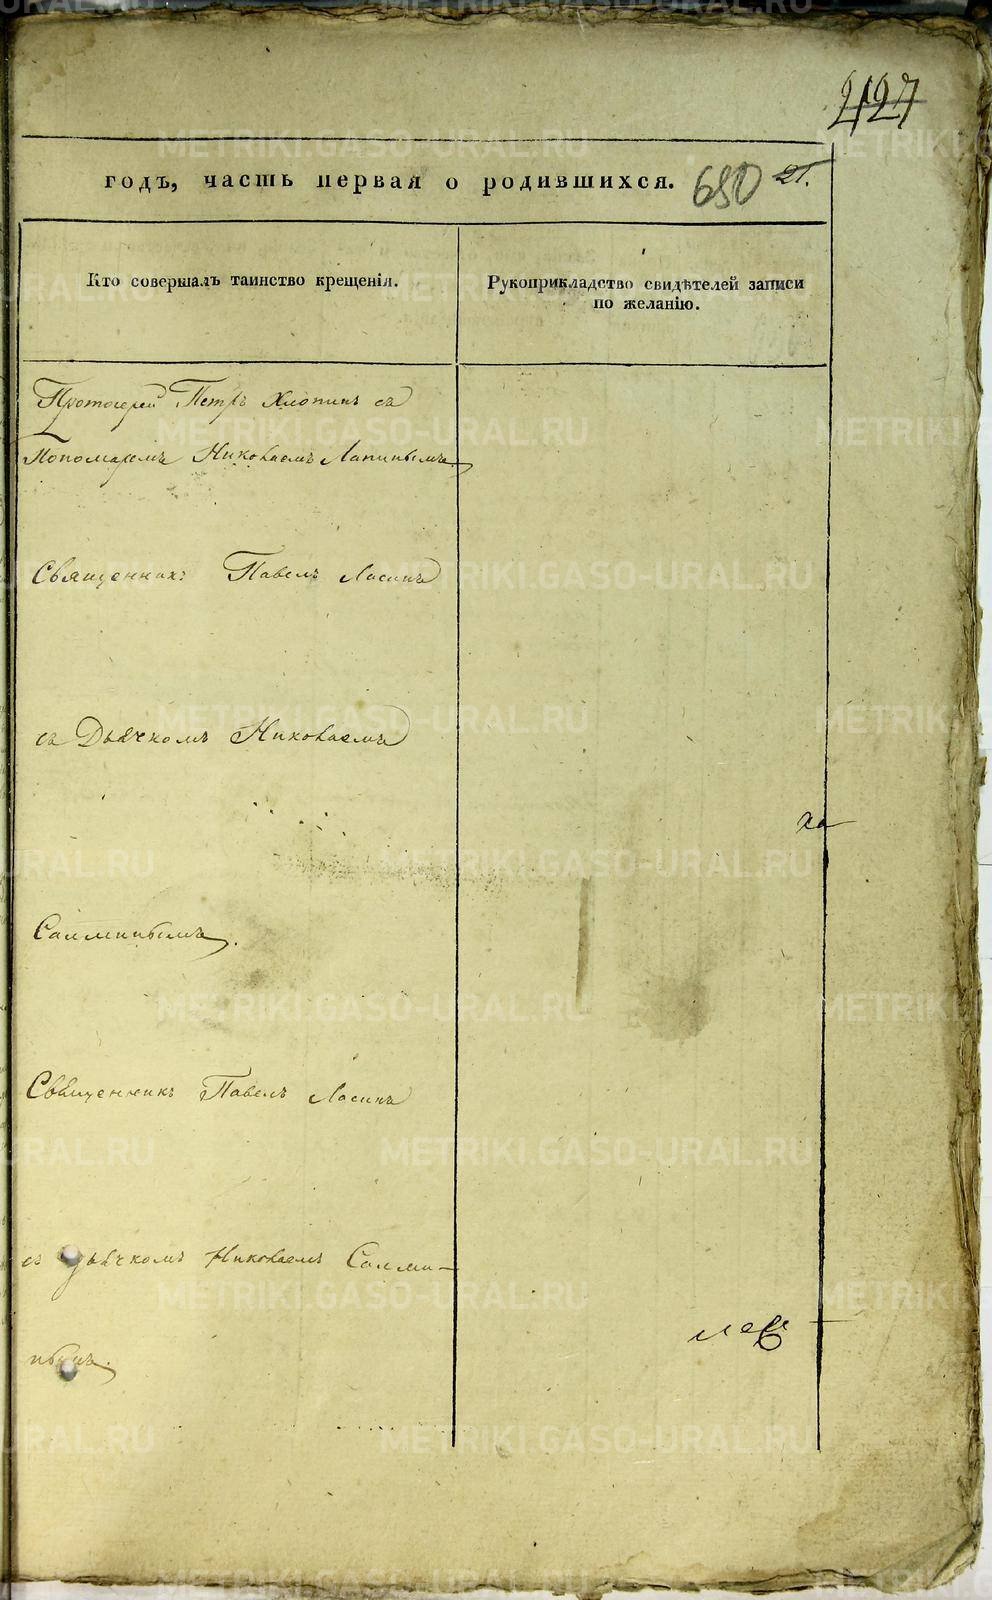 годъ, часть первая о родившихся. 680 21.
Кто совершалъ таинство крещенія.
Рукоприкладство свидѣтелей записи
по желанію.
Протоіерей Петръ Хлопинъ съ
Пономаремъ Николаемъ Лапинымъ
Священникъ Павелъ Ласинъ
съ Дьячкомъ Николаемъ
Салминымъ.
Священникъ Павелъ Ласинъ
съ Дьячкомъ Николаемъ Салми-
нымъ.
METRIKI.GASO-URAL.RU